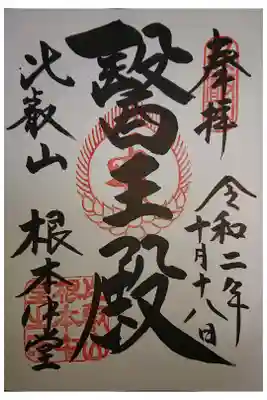 奉拝
令和二年
十月十八日
醫王殿
比叡山
根本中堂